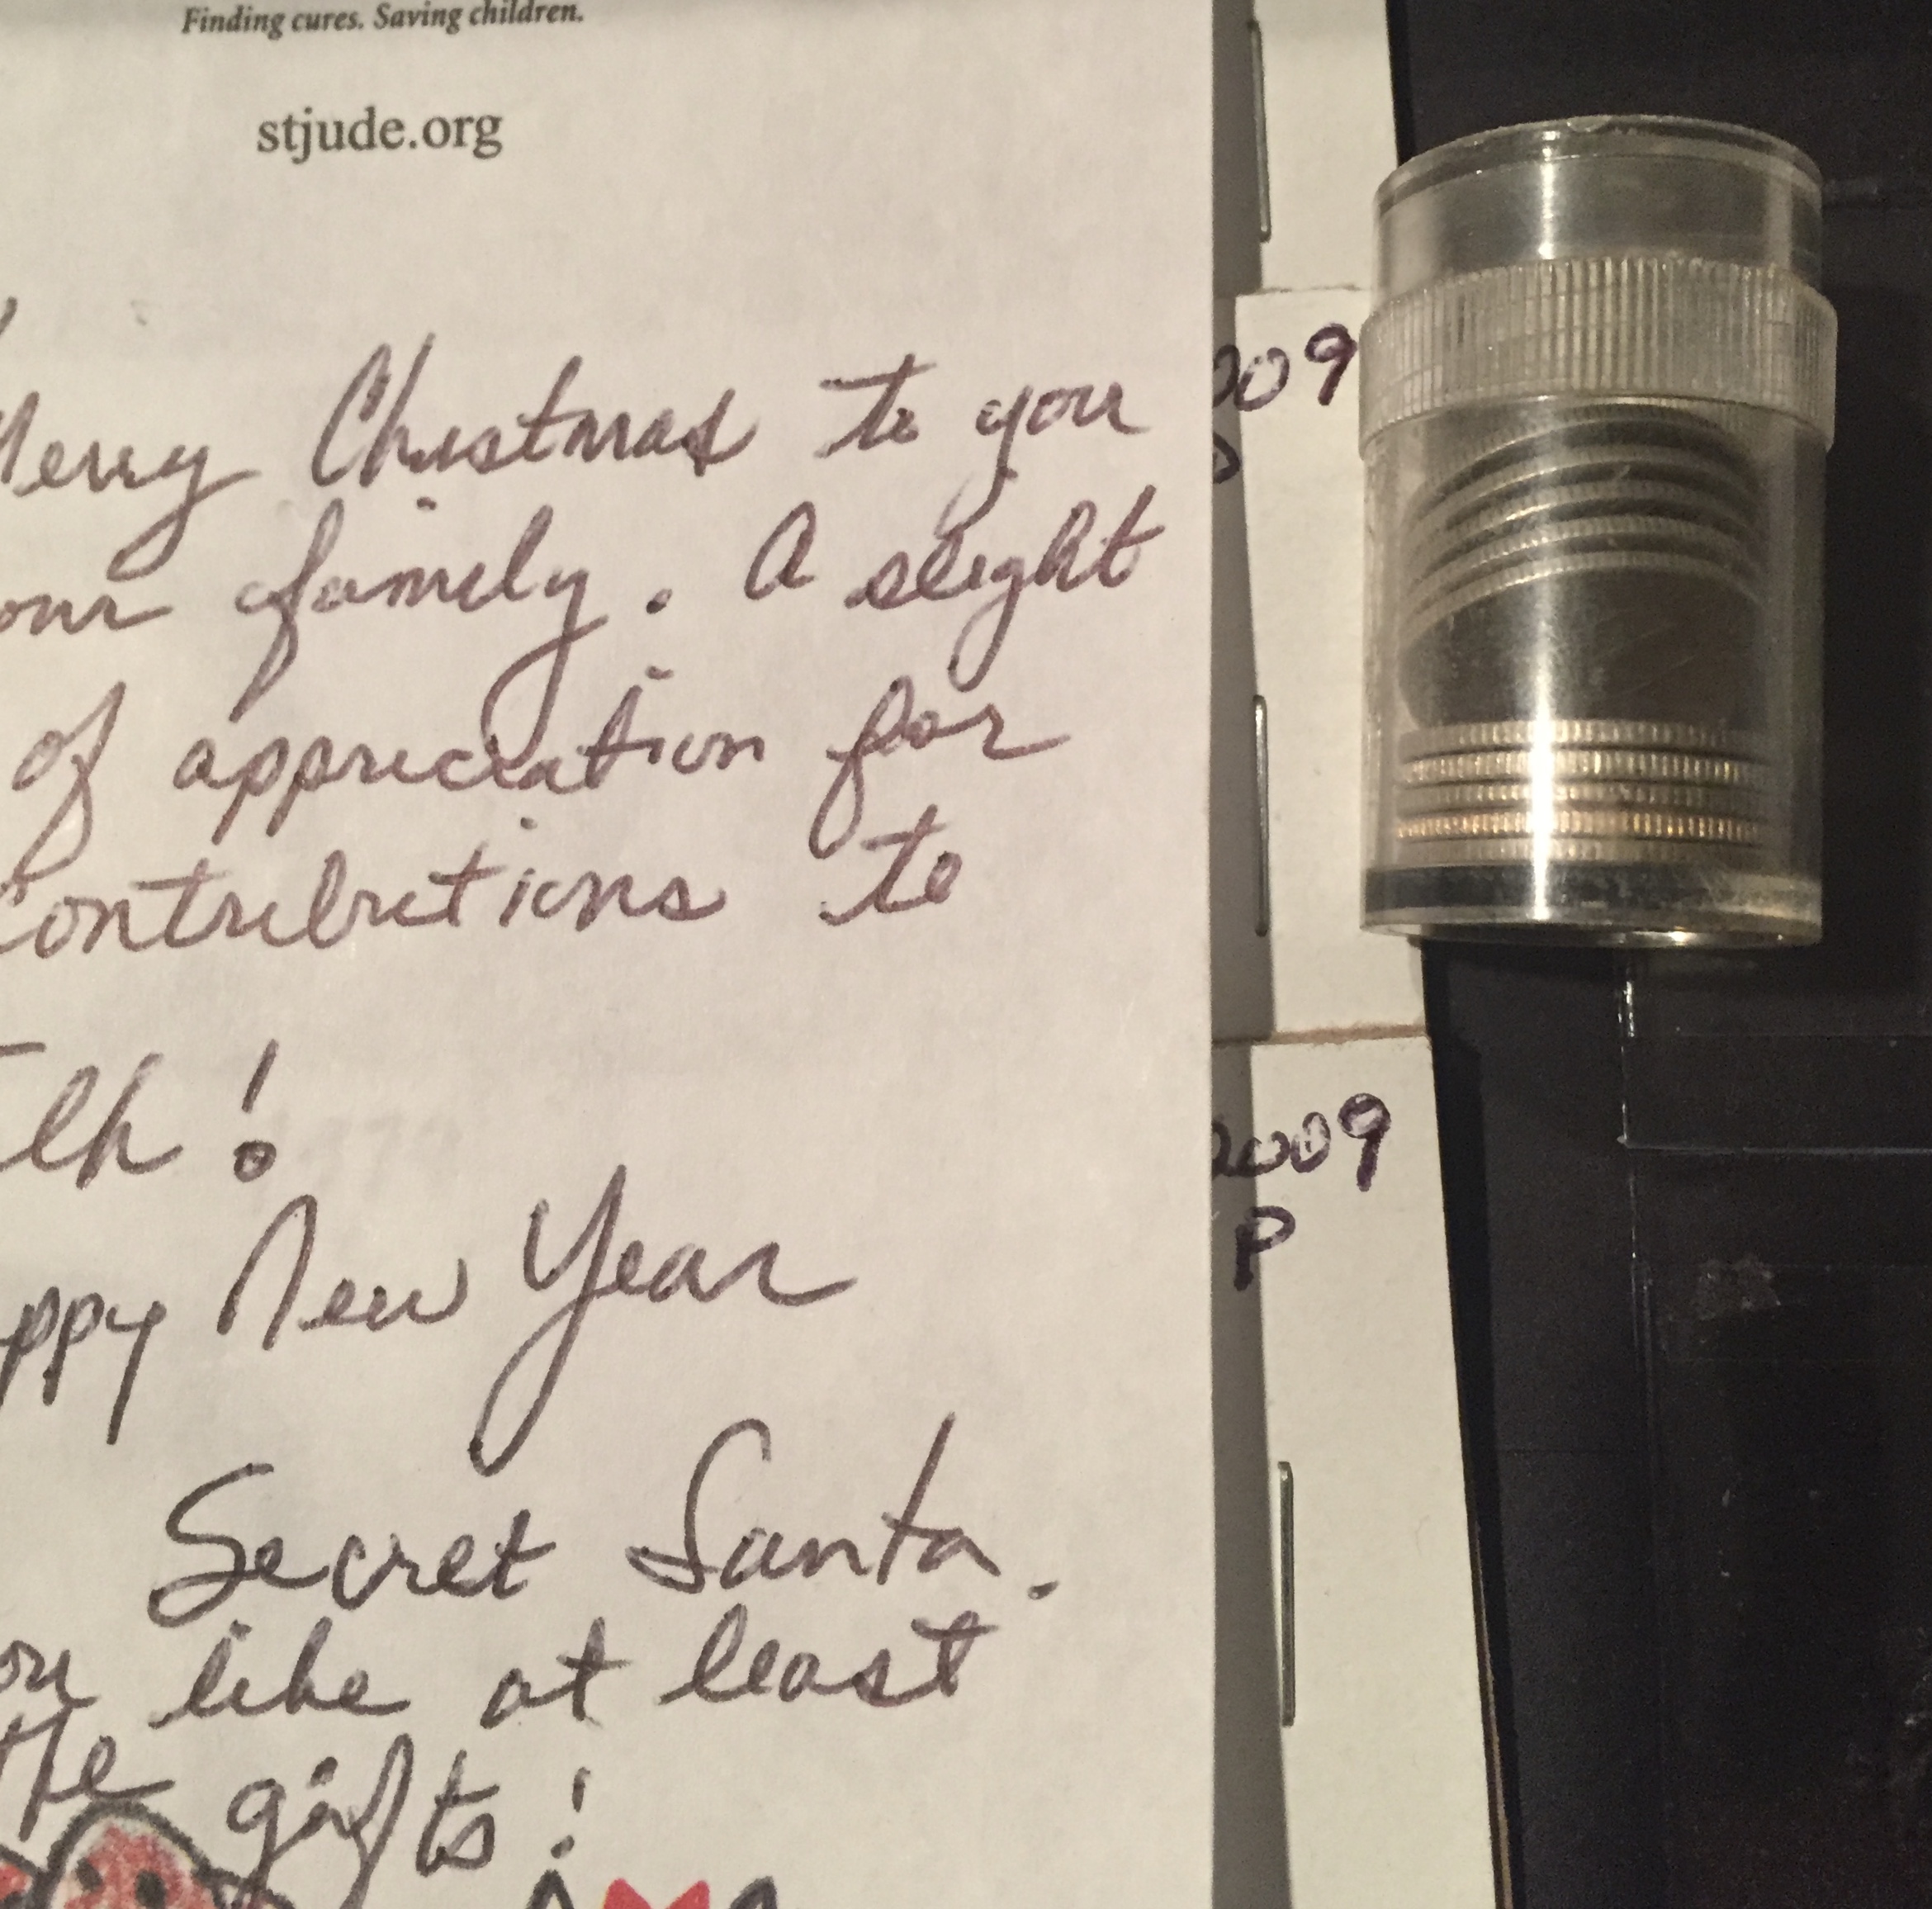 Finding cures. Saving children.
stjude.org
Merry Christmas to you
our family. A slight
of appreciation for
contributions to
lk!
ppy New Year
Secret Santa.
ou like at least
the gifts!
009
2009
P